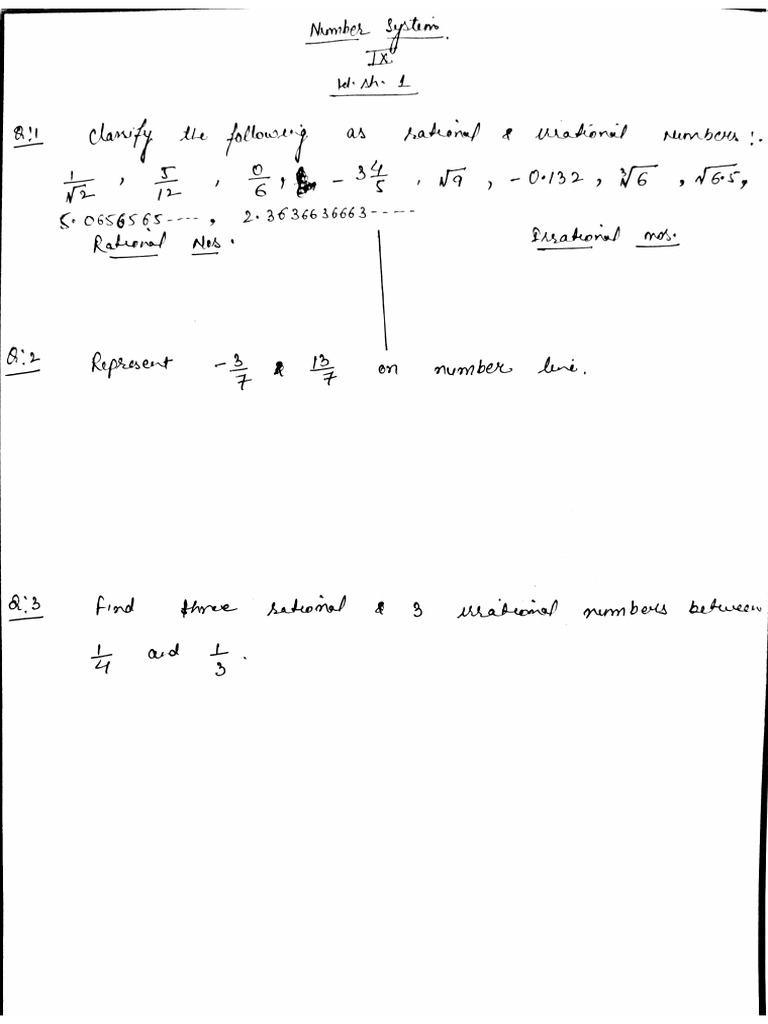 Number System
IX
W.sh. 1
Q:1 Classify the following as rational & irrational numbers:-
1/√2 , 5/12 , 0/6 , -3 4/5 , √9 , -0.132 , ∛6 , √6.5 ,
5.0656565---- , 2.3636636663-----
Rational Nos. Irrational nos.
Q:2 Represent -3/7 & 13/7 on number line.
Q:3 Find three rational & 3 irrational numbers between
1/4 and 1/3 .